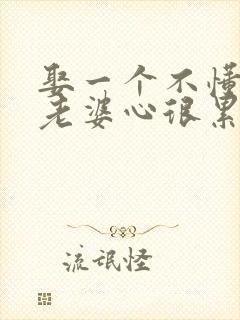 娶一个不懂
老婆心很累
流氓怪